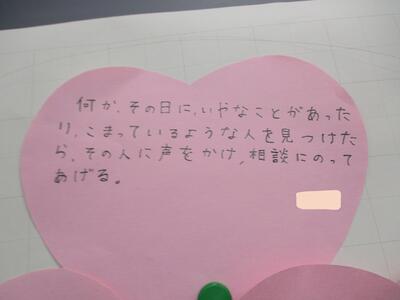 何か、その日に、いやなことがあった
り、こまっているような人を見つけた
ら、その人に声をかけ、相談にのって
あげる。